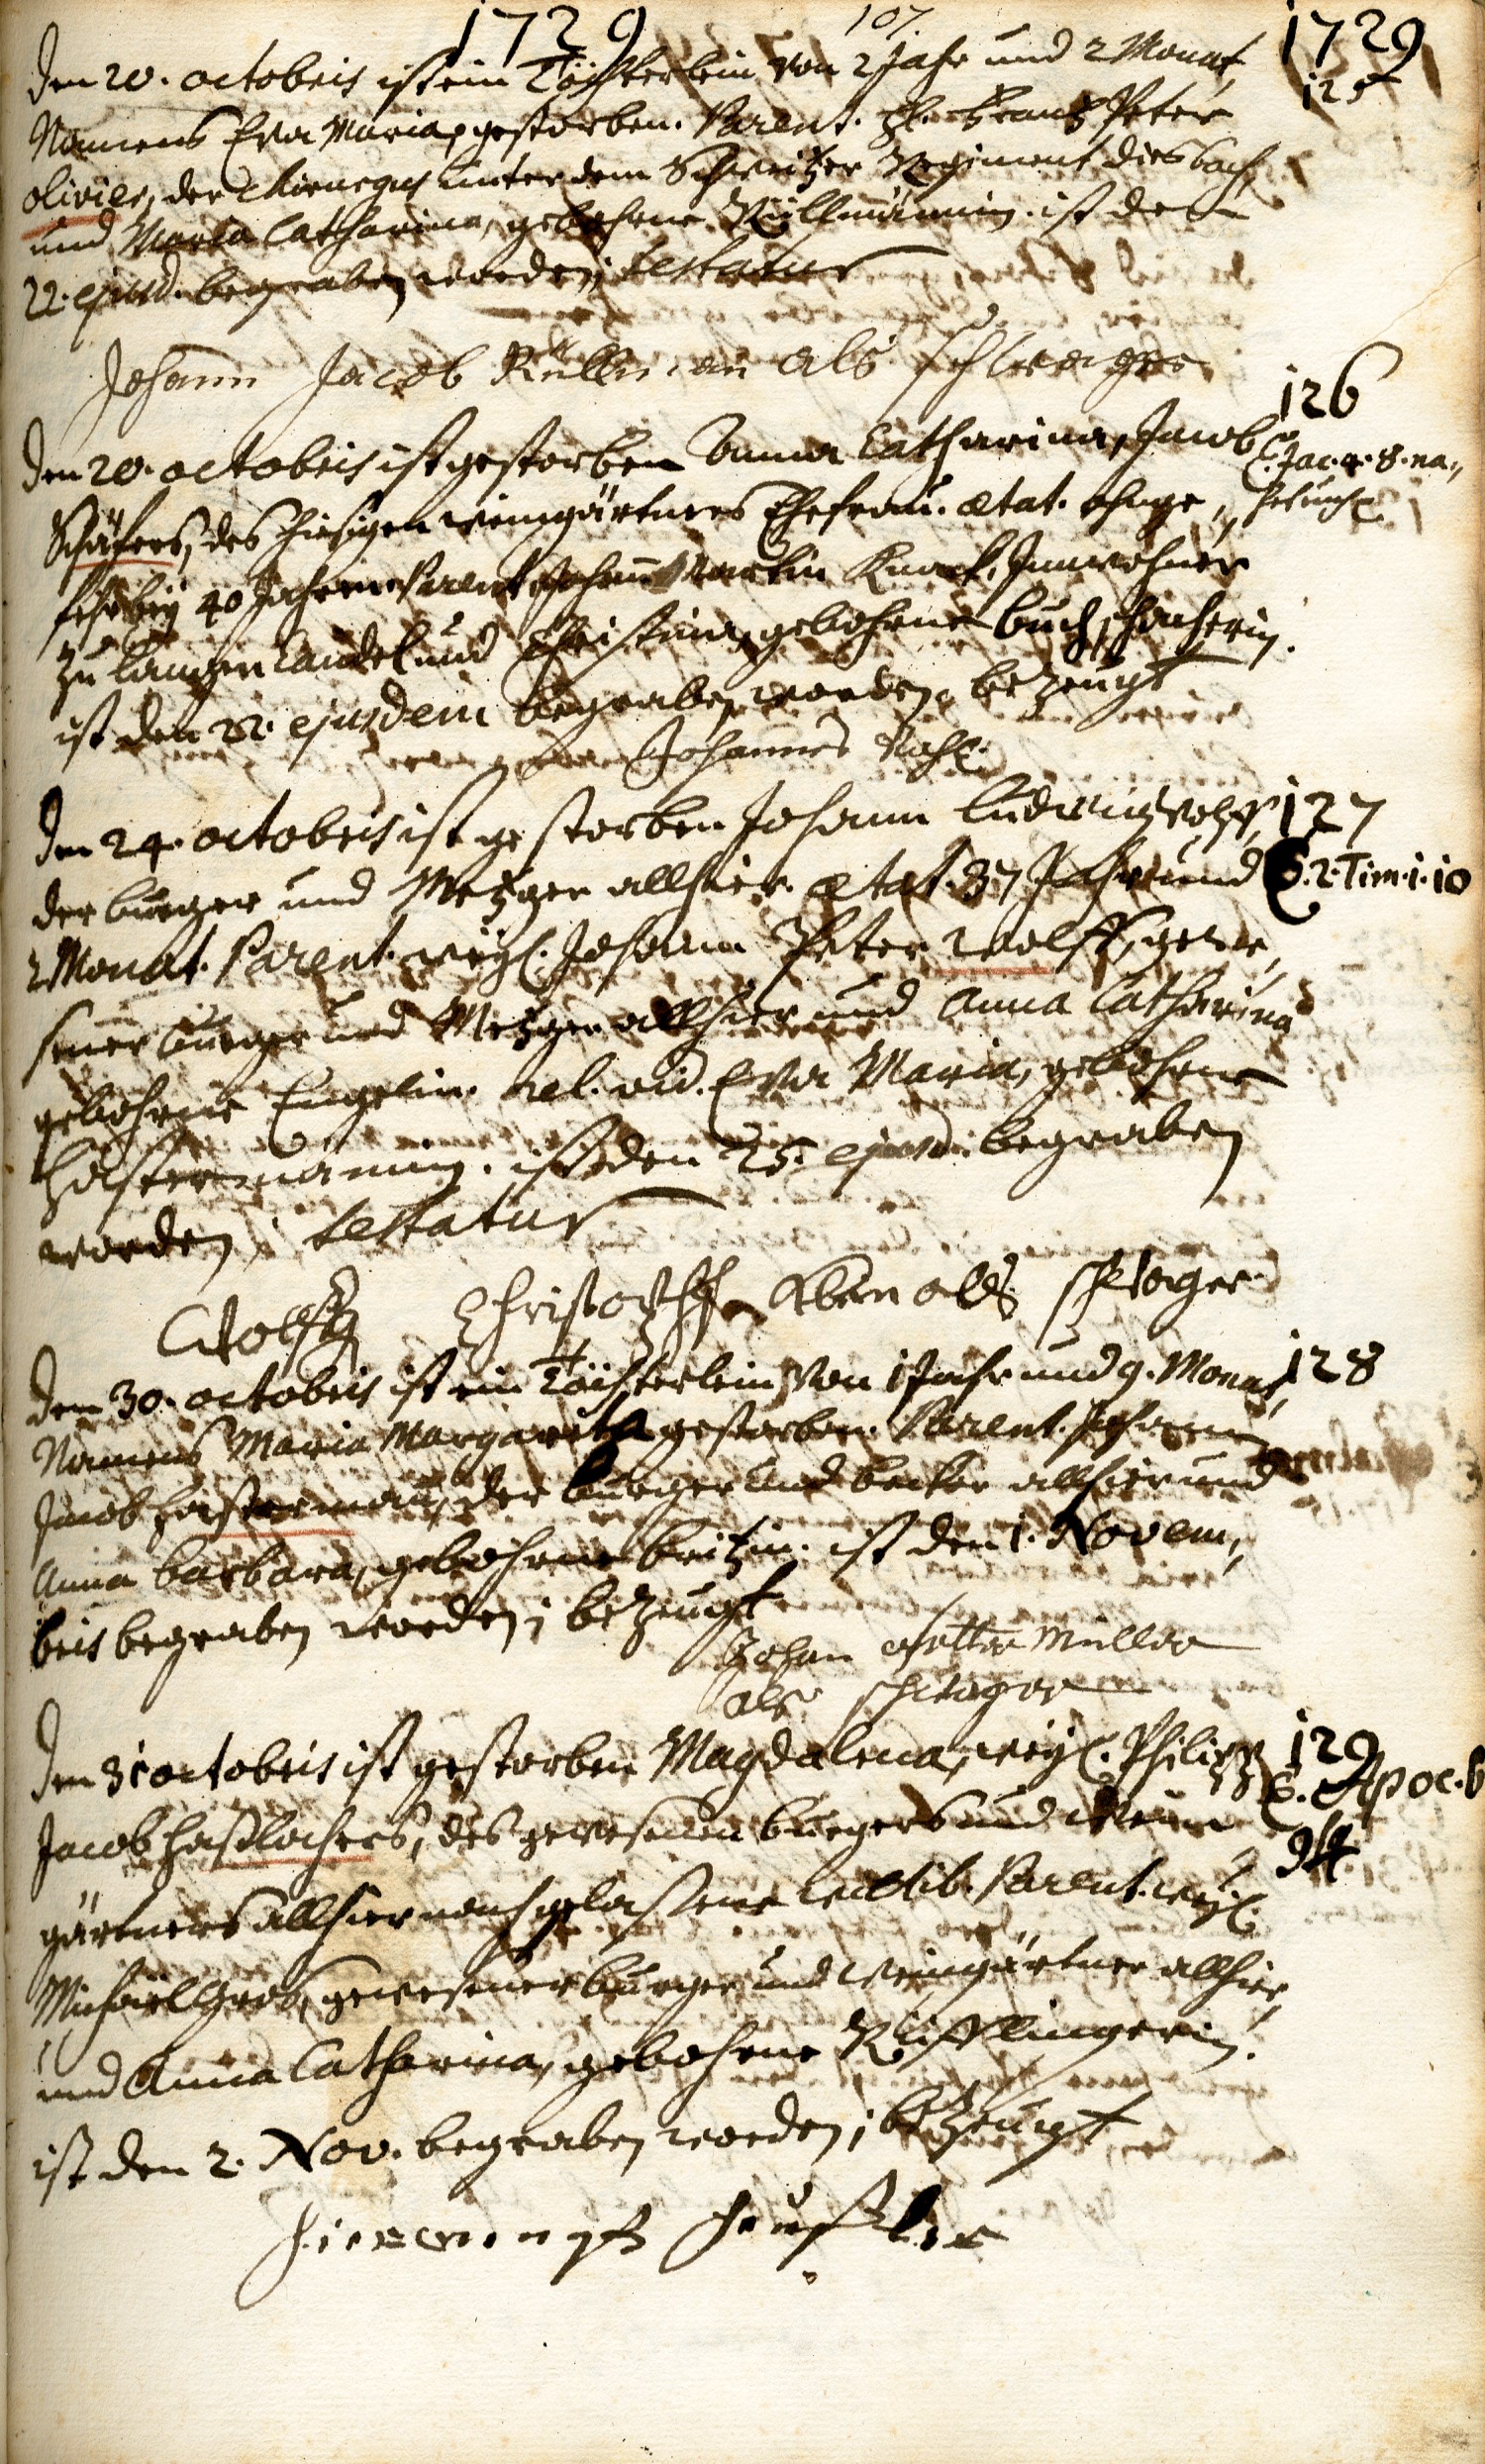 1729 107. 1729
Den 20. octobris ist ein Töchterlein von 2 Jahr und 2 Monat, 125
Namens Eva Maria, gestorben. Parent. H. Frantz Peter
Olivier, der Chirurgus unter dem Schweitzer Regiment Diesbach,
und Maria Catharina, gebohrne Küllmännin. ist den
22. ejusd. begraben worden; testatur
Johann Jacob Küllman als schwager
126
Den 20. octobris ist gestorben Anna Catharina, Jacob C. Jac. 4. 8. na„
Schäfers, des hiesigen weingärtners Ehefrau. ætat. ohnge„ het euch
fehr bey 40 Jahren. Parent. Johann Martin Knoch, Innwohner
zu Langen Candel und Christina, gebohrne
ist den 22. ejusdem begraben worden. bezeugt
Johannes Kohl.
Den 24. octobris ist gestorben Johann Ludwig Wolff, 127
der burger und Metzger allhier. ætat. 37 Jahr und C. 2. Tim. 1. 10
2 Monat. Parent. weyl. Johann Peter Wolff, gewe„
sener burger und Metzger allhier und Anna Catharina
gebohrne Engelin. rel. vid. Eva Maria, gebohrne
Hastermännin. ist den 25. ejusd. begraben
worden; testatur
Christoph als schwager
Den 30. octobris ist ein Töchterlein von 1 Jahr und 9. Monat, 128
Namens Maria Margaretha gestorben. Parent. Johann
Jacob Hasterman, der burger und becker allhier und
Anna Barbara, gebohrne Britzin. ist den 1. Novem„
bris begraben worden; bezeugt
Johan Petter Müller
als schwager
Den 31 octobris ist gestorben Magdalena, weyl. Philipp 129
Jacob Haßlochers, des gewesenen burgers und Wein„ C. Apoc. 6
gärtners allhier nachgelaßene Wittib. Parent. weyl. 9
Michael Groß, gewesener burger und weingärtner allhier,
und Anna Catharina, gebohrne Kißlingerin.
ist den 2. Nov. begraben worden; bezeugt